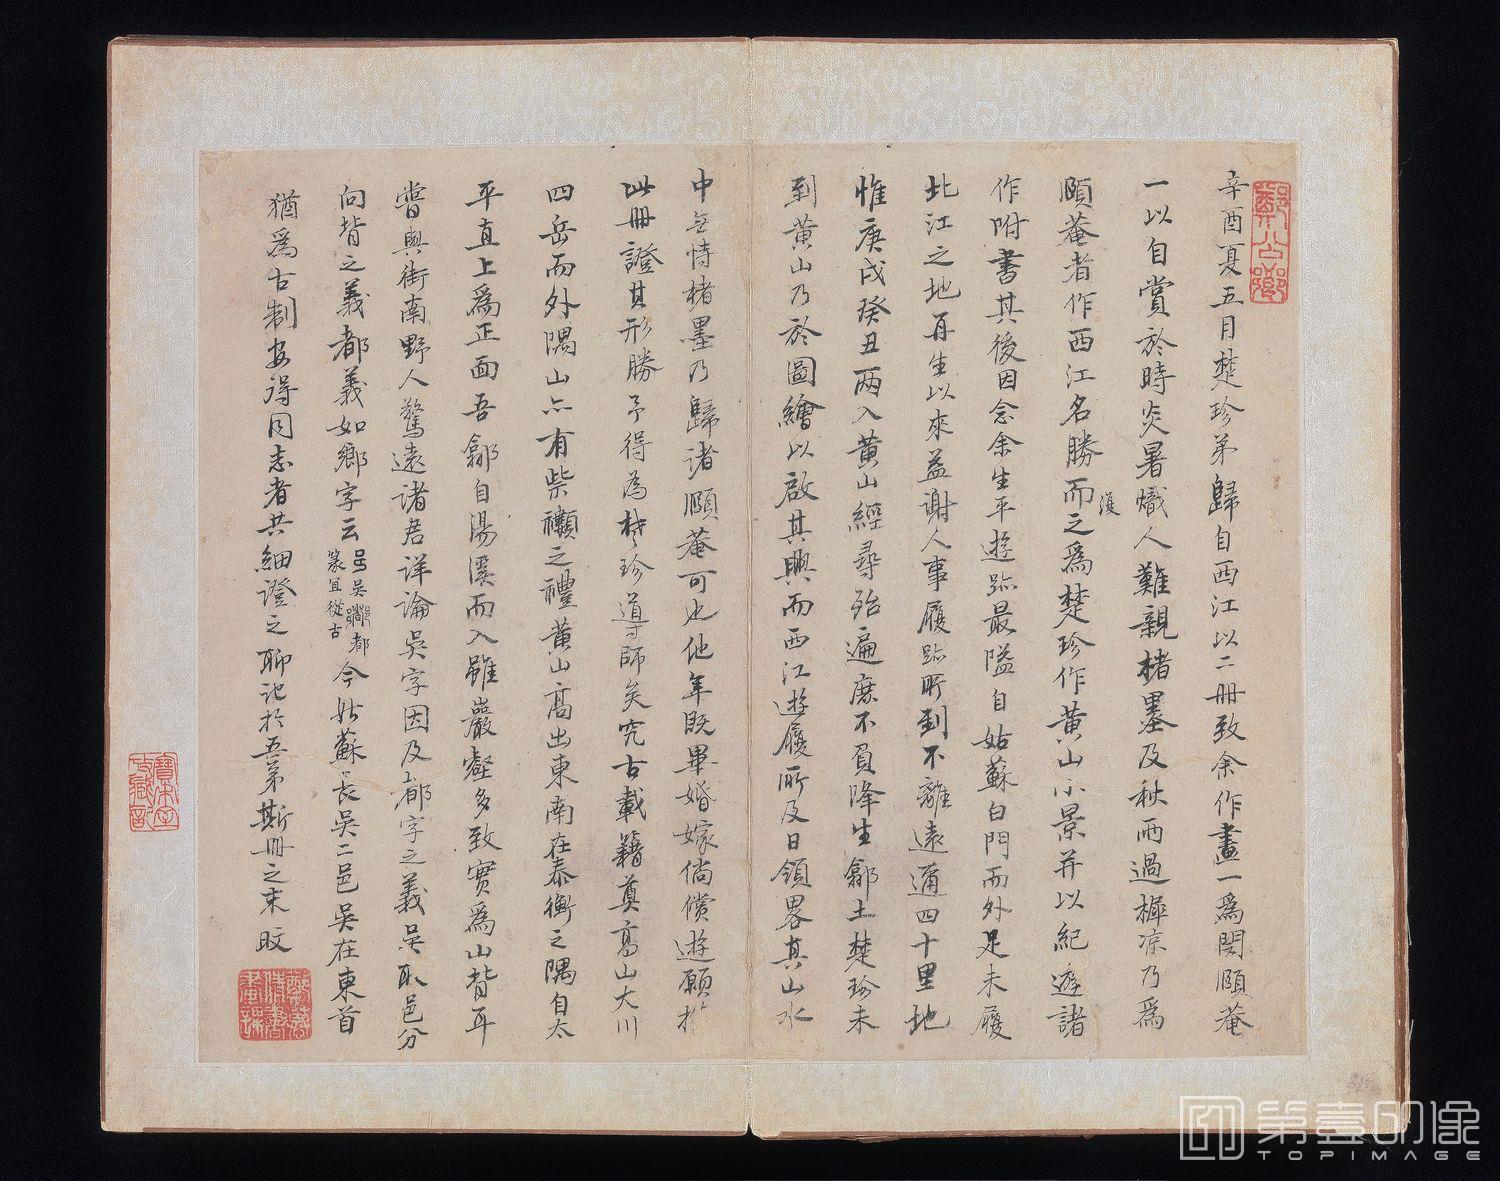 辛酉夏五月楚珍弟歸自西江以二冊致余作畫一為閔頤菴
一以自賞於時炎暑熾人難親楮墨及秋雨過樨涼乃為
頤菴者作西江名勝而之為楚珍作黃山小景并以紀遊諸
復
作附書其後因念余生平遊跡最隘自姑蘇白門而外足未履
北江之地再生以來益謝人事履跡所到不離遠邇四十里地
惟庚戌癸丑兩入黃山經尋殆遍庶不負降生鄉土楚珍未
到黃山乃於圖繪以啟其興而西江遊履所及日領畧其山水
中無恃楮墨乃歸諸頤菴可也他年既畢婚嫁倘償遊願於
此冊證其形勝予得為楚珍導師矣究古載籍奠高山大川
四岳而外隅山亦有柴之禮黃山高出東南在泰衡之隅自太
平直上為正面吾鄉自湯溪而入雖巖壑多致實為山背耳
嘗與街南野人驚遠諸君詳論吳字因及都字之義吳取邑分
向背之義都義如鄉字云
吳都
篆宜從古
今姑蘇長吳二邑吳在東首
猶為古制安得同志者共細證之聊記於五弟斯冊之末旼
TOPIMAGE